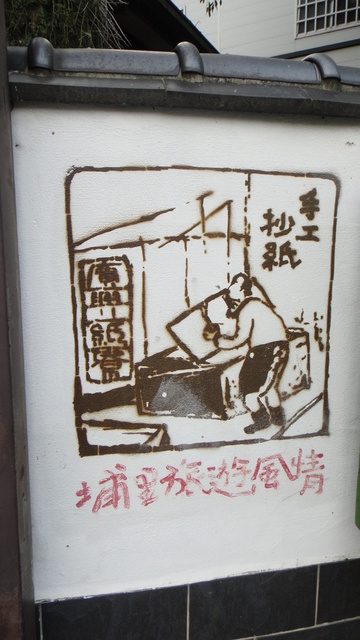 手工
抄紙
廣興紙寮
埔里旅遊風情